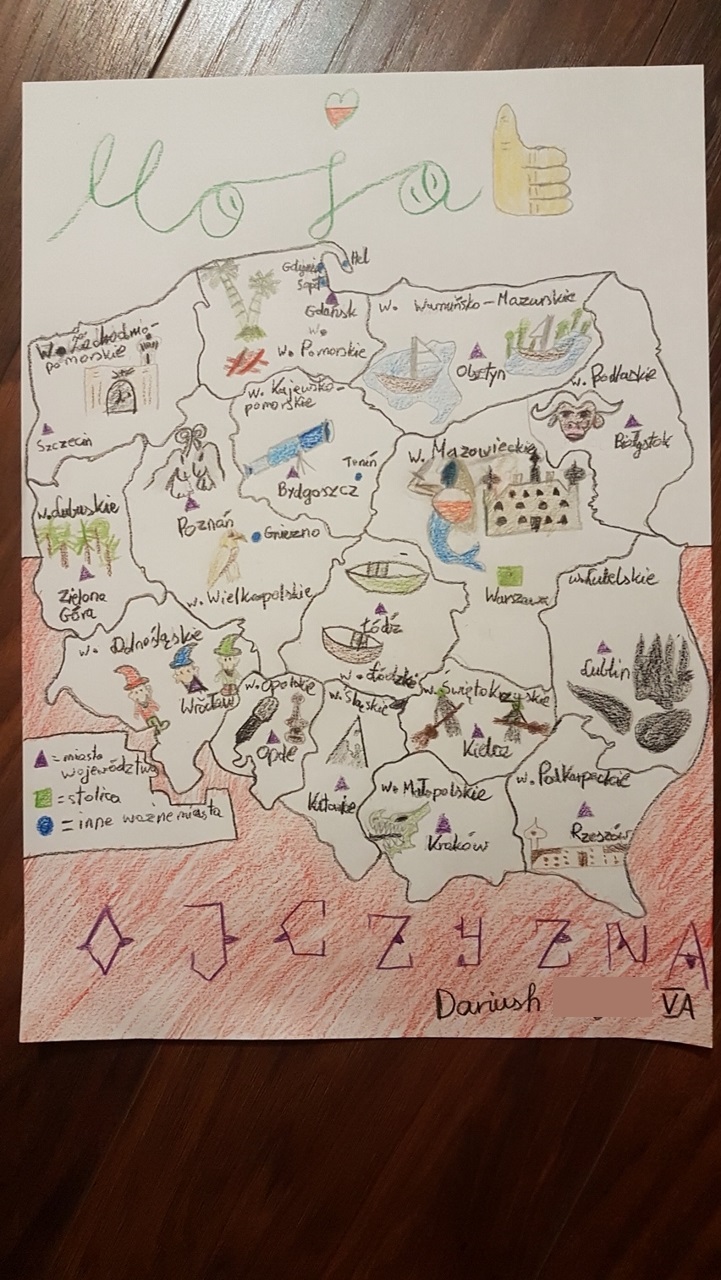 Moja
Hel
Gdynia
Sopot
Gdańsk
w.
w. Pomorskie
w. Warmińsko-Mazurskie
Olsztyn
w. Zachodnio-
pomorskie
Szczecin
w. Kujawsko-
pomorskie
Toruń
Bydgoszcz
w. Podlaskie
Białystok
w. Mazowieckie
Warszawa
w. Lubuskie
Zielona
Góra
Poznań
Gniezno
w. Wielkopolskie
Łódź
w. Łódzkie
w. Lubelskie
Lublin
w. Dolnośląskie
Wrocław
w. Opolskie
Opole
w. Śląskie
Katowice
w. Świętokrzyskie
Kielce
w. Małopolskie
Kraków
w. Podkarpackie
Rzeszów
= miasta
województwa
= stolica
= inne ważne miasta
OJCZYZNA
Dariush VA